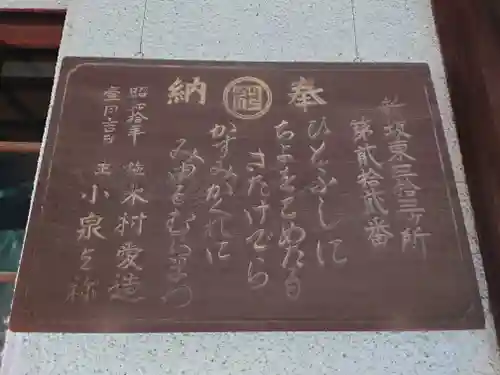 奉
納
坂東三拾三ヶ所
第貳拾貳番
ひとふしに
ちよをこめたる
さたけでら
かすみがくれに
みゆるむらまつ
昭和拾年
壹月吉日
木村愛造
小泉